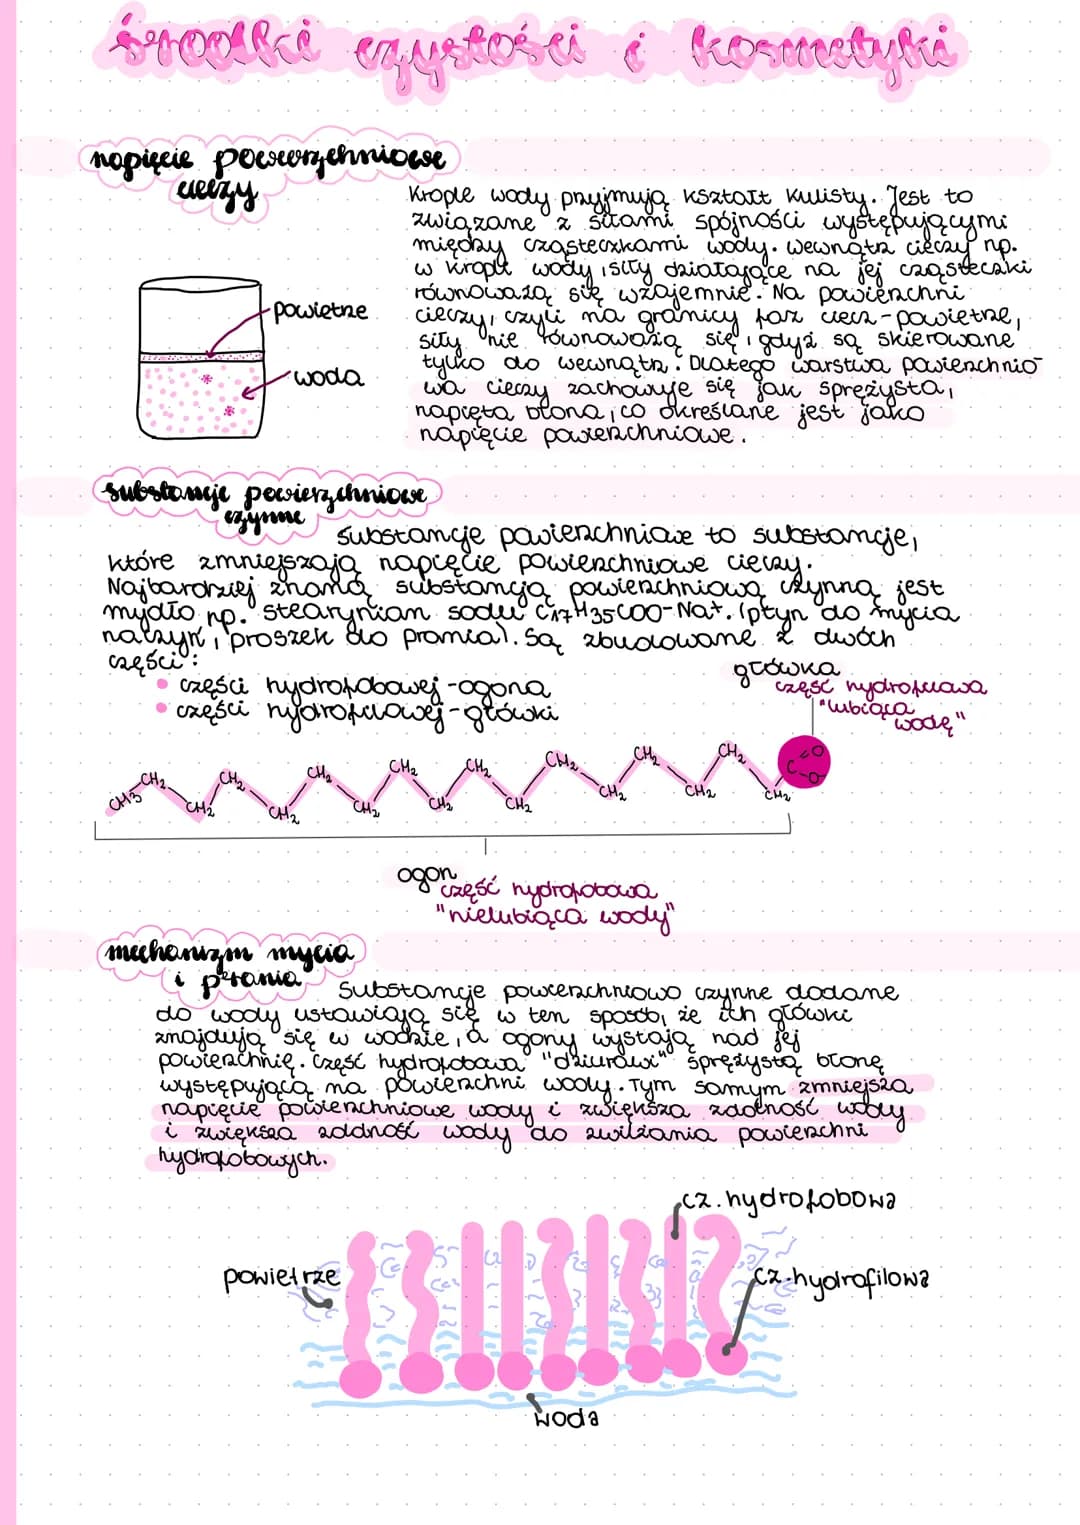 środki czystości i kosmetyki
napięcie powierzchniowe
cieczy
Krople wody przyjmują kształt kulisty. Jest to
związane z siłami spójności występującymi
między cząsteczkami wody. wewnątrz cieczy np.
w kropli wody, siły działające na jej cząsteczki
równoważą się wzajemnie. Na powierzchni
cieczy, czyli na granicy faz ciecz-powietrze,
siły nie równoważą się, gdyż są skierowane
tylko do wewnątrz. Dlatego warstwa powierzchnio-
wa cieczy zachowuje się jak sprężysta,
napięta błona, co określane jest jako
napięcie powierzchniowe.
powietrze
woda
substancje powierzchniowe
czynne
substancje powierzchniowe to substancje,
które zmniejszają napięcie powierzchniowe cieczy.
Najbardziej znaną substancją powierzchniową czynną jest
mydło np. stearynian sodu C17H35COO-Na+. (płyn do mycia
naczyń, proszek do prania). Są zbudowane z dwóch
części:
• części hydrofobowej -ogona
• części hydrofilowej -główki
główka
część hydrofilowa
"lubiąca
wodę"
CH3 CH2 CH2 CH2 CH2 CH2 CH2 CH2 CH2 CH2 CH2 CH2 CH2 CH2 CH2 CH2 CH2 C=O -O
ogon
część hydrofobowa
"nielubiąca wody"
mechanizm mycia
i prania
Substancje powierzchniowo czynne dodane
do wody ustawiają się w ten sposób, że ich główki
znajdują się w wodzie, a ogony wystają nad jej
powierzchnię. Część hydrofobowa "dziurawi" sprężystą błonę
występującą na powierzchni wody. Tym samym zmniejsza
napięcie powierzchniowe wody i zwiększa zdolność wody
i zwiększa zdolność wody do zwilżania powierzchni
hydrofobowych.
cz. hydrofobowa
powietrze
cz. hydrofilowa
woda